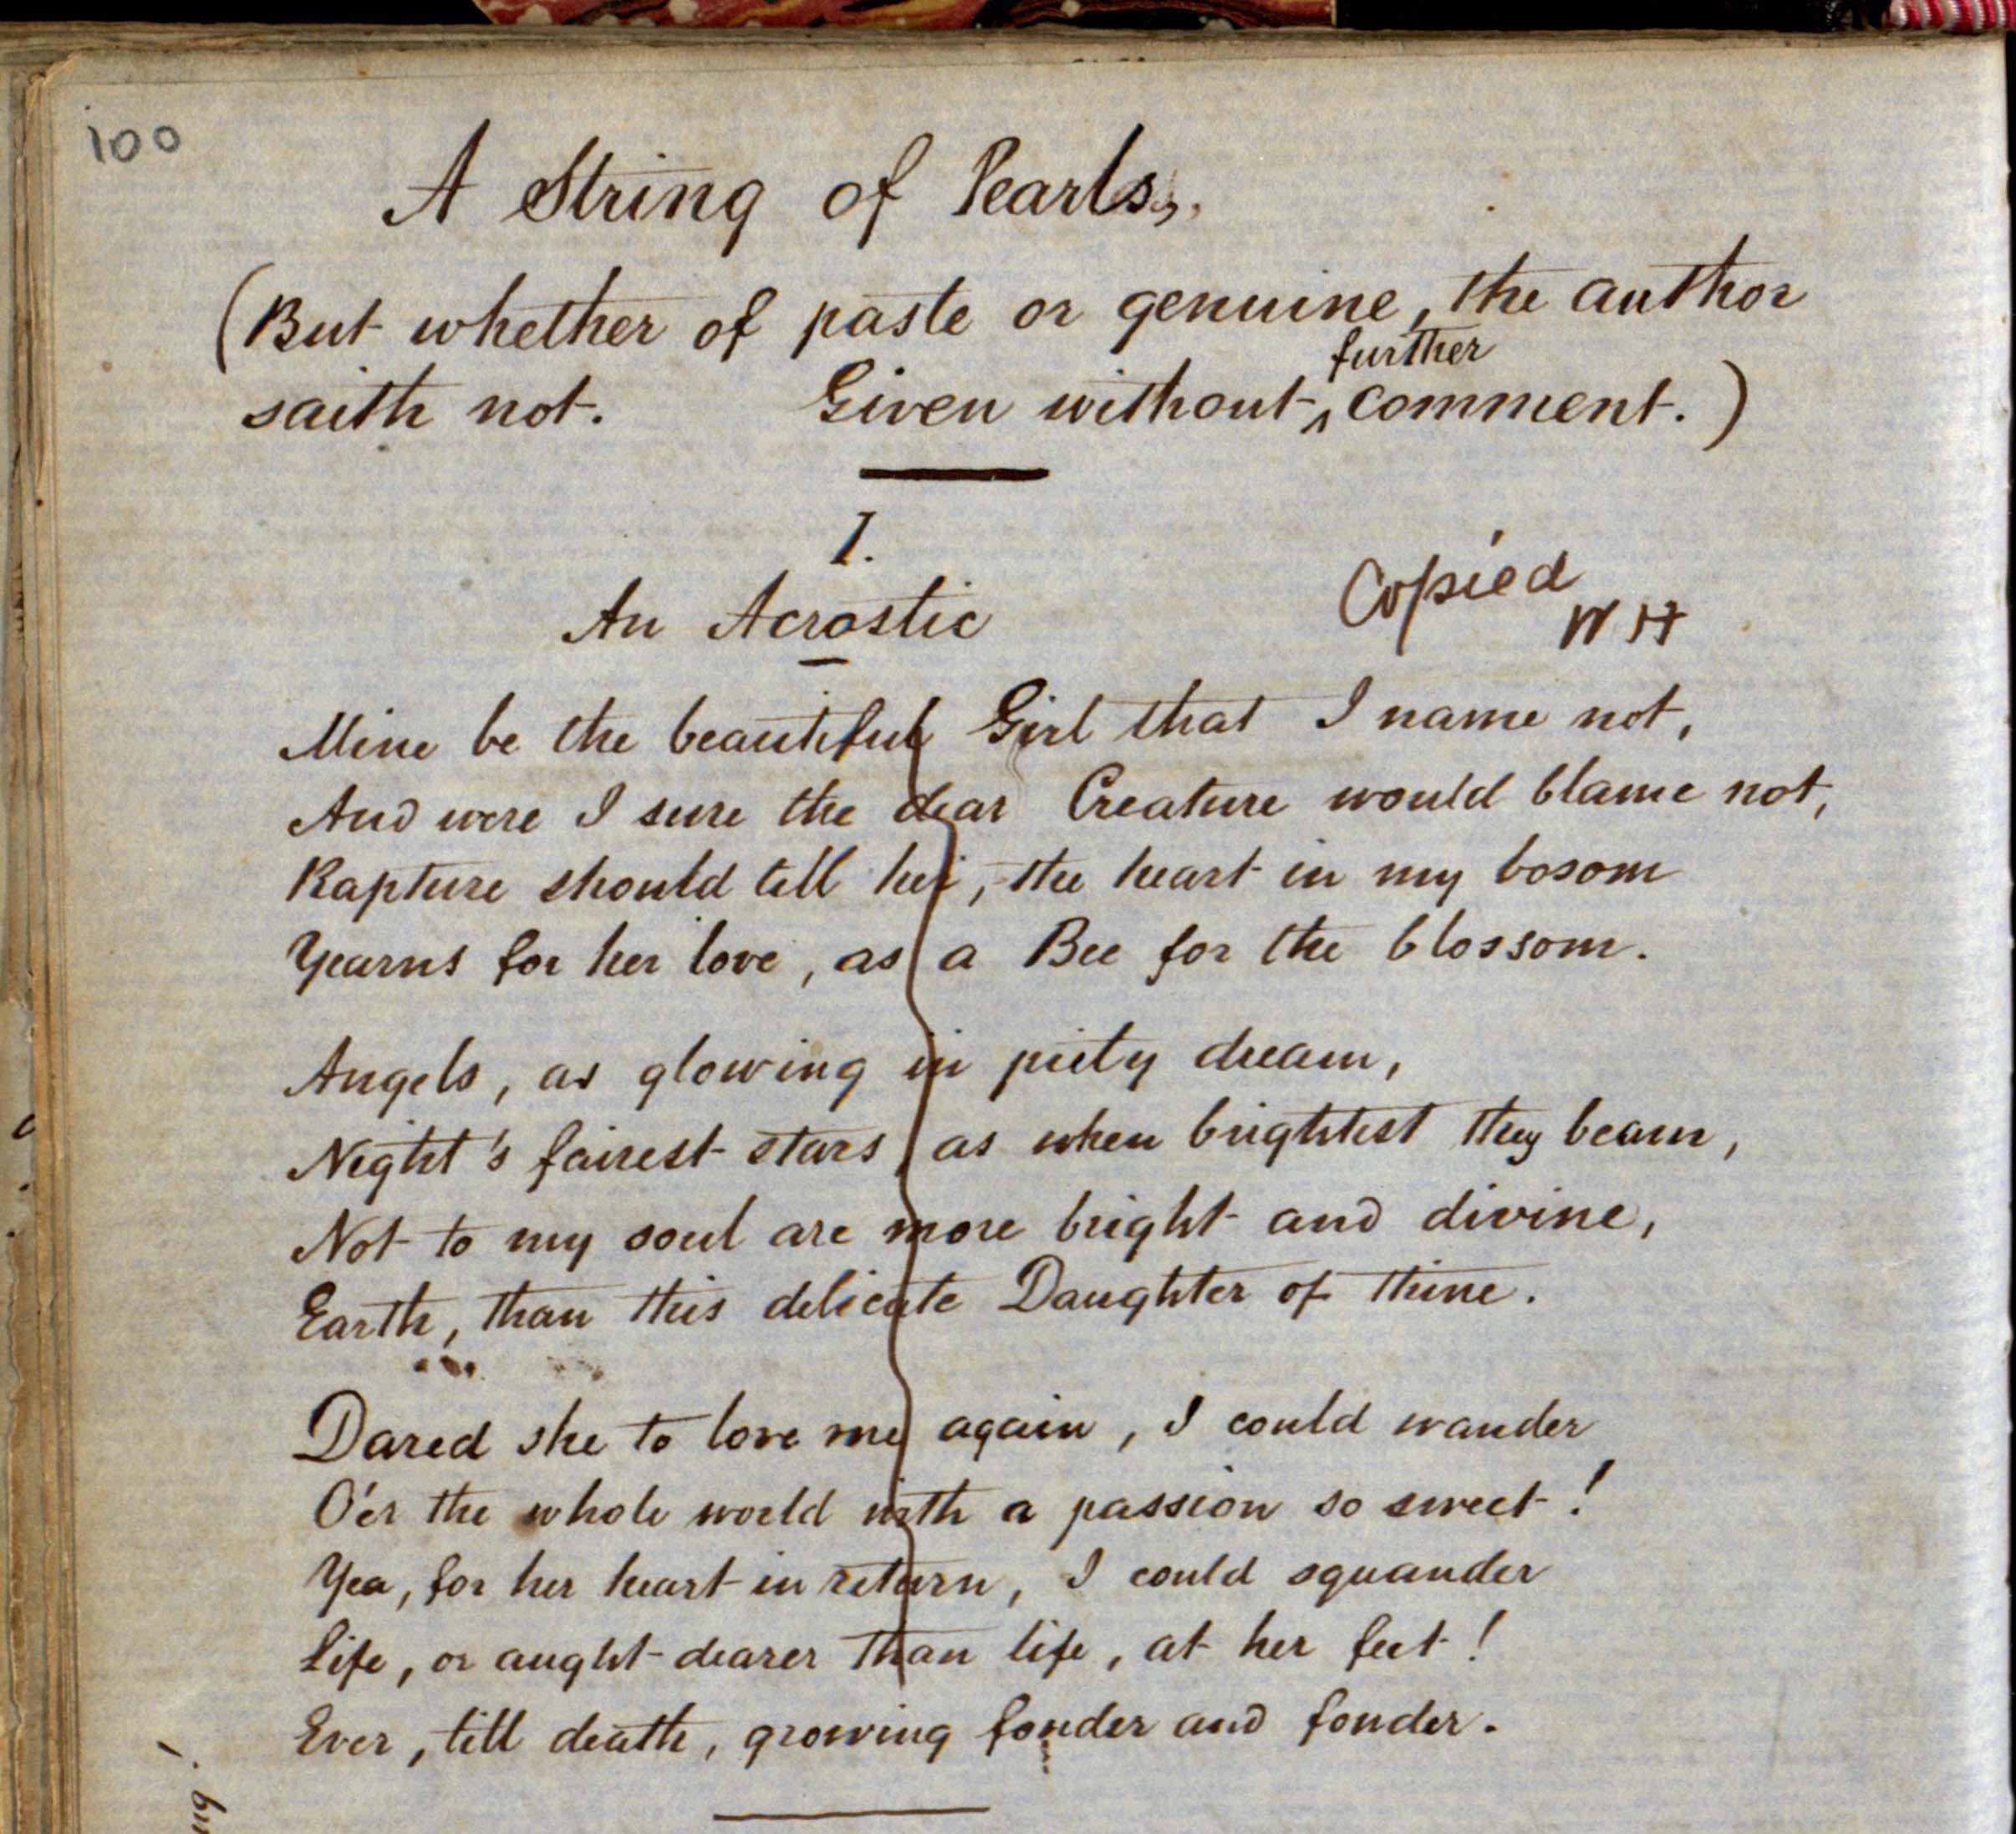 100
A String of Pearls,
(But whether of paste or genuine, the author
further
saith not. Given without ^ comment.)
I.
An Acrostic
Copied
W H
Mine be the beautiful Girl that I name not,
And were I sure the dear Creature would blame not,
Rapture should tell her, the heart in my bosom
Yearns for her love, as a Bee for the blossom.
Angels, as glowing in piety dream,
Night's fairest stars, as when brightest they beam,
Not to my soul are more bright and divine,
Earth, than this delicate Daughter of thine.
Dared she to love me again, I could wander
O'er the whole world with a passion so sweet!
Yea, for her heart in return, I could squander
Life, or aught dearer than life, at her feet!
Ever, till death, growing fonder and fonder.